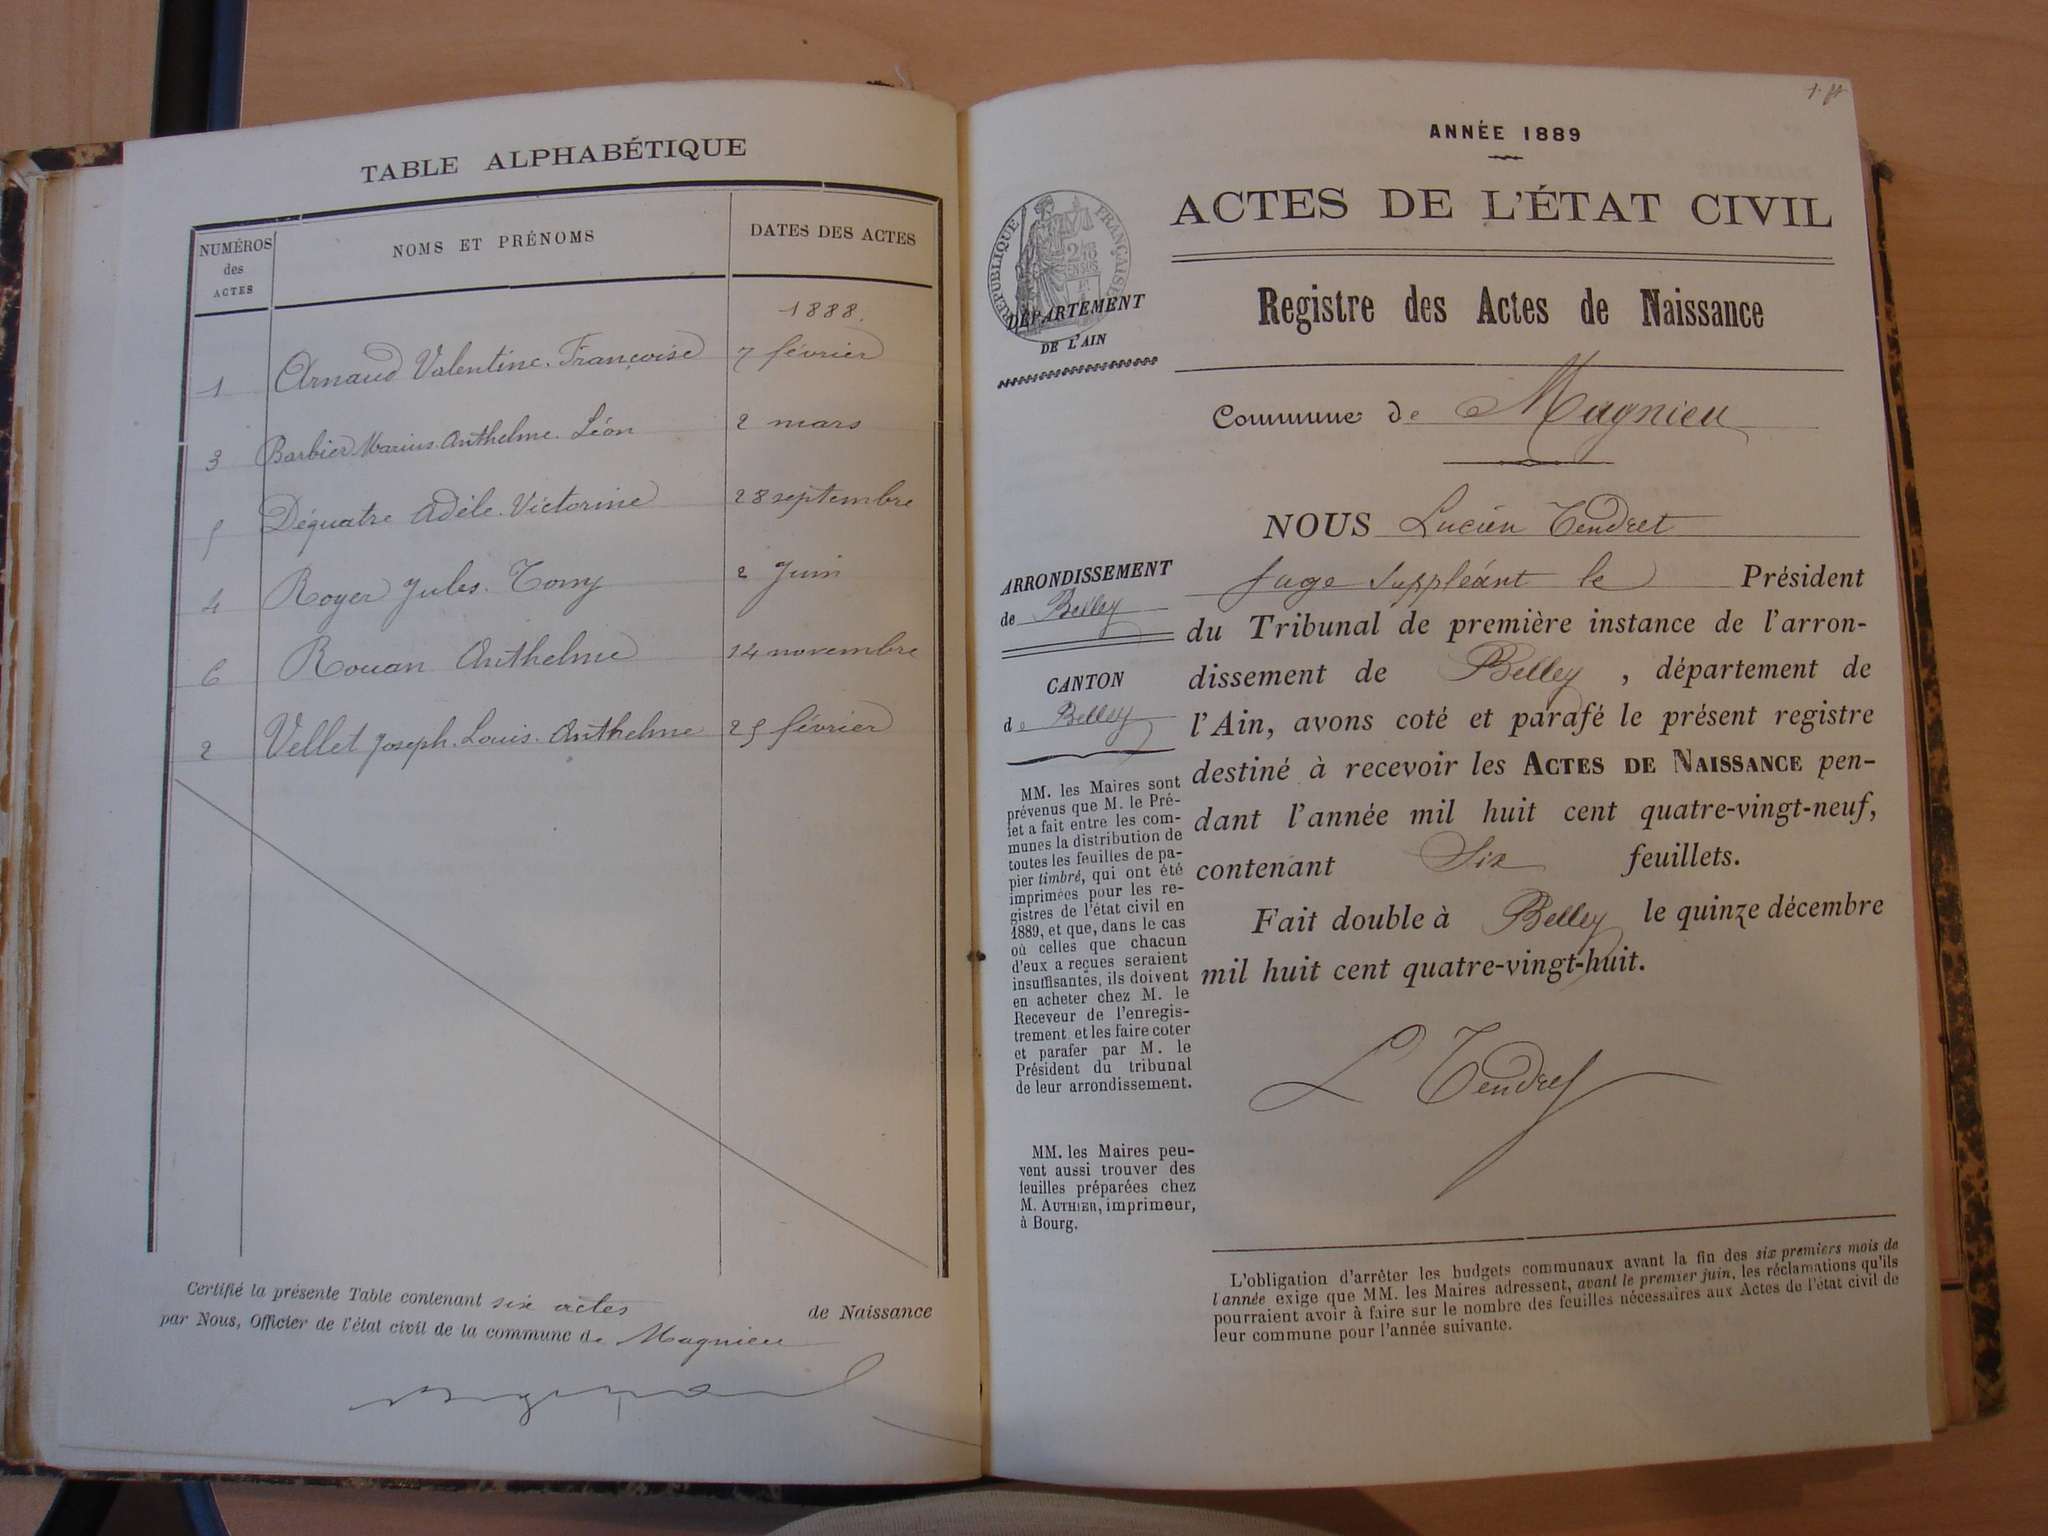 TABLE ALPHABÉTIQUE
NUMÉROS des ACTES
NOMS ET PRÉNOMS
DATES DES ACTES
1888.
1 Arnaud Valentine. Françoise 7 février
3 Barbier Marius Anthelme. Léon 2 mars
5 Déquatre Adèle. Victorine 28 septembre
4 Royer Jules. Tony 2 Juin
6 Rouan Anthelme 14 novembre
2 Vellet Joseph. Louis. Anthelme 25 février
Certifié la présente Table contenant six actes de Naissance
par Nous, Officier de l'état civil de la commune de Magnieu
1. ft
ANNÉE 1889
ACTES DE L'ÉTAT CIVIL
RÉPUBLIQUE FRANÇAISE
DÉPARTEMENT
DE L'AIN
Registre des Actes de Naissance
Commune de Magnieu
ARRONDISSEMENT
de Belley
CANTON
de Belley
MM. les Maires sont
prévenus que M. le Pré-
fet a fait entre les com-
munes la distribution de
toutes les feuilles de pa-
pier timbré, qui ont été
imprimées pour les re-
gistres de l'état civil en
1889, et que, dans le cas
où celles que chacun
d'eux a reçues seraient
insuffisantes, ils doivent
en acheter chez M. le
Receveur de l'enregis-
trement et les faire coter
et parafer par M. le
Président du tribunal
de leur arrondissement.
MM. les Maires peu-
vent aussi trouver des
feuilles préparées chez
M. AUTHIER, imprimeur,
à Bourg.
NOUS Lucien Tendret
Juge Suppléant le Président
du Tribunal de première instance de l'arron-
dissement de Belley, département de
l'Ain, avons coté et parafé le présent registre
destiné à recevoir les ACTES DE NAISSANCE pen-
dant l'année mil huit cent quatre-vingt-neuf,
contenant Six feuillets.
Fait double à Belley le quinze décembre
mil huit cent quatre-vingt-huit.
L Tendret
L'obligation d'arrêter les budgets communaux avant la fin des six premiers mois de
l'année exige que MM. les Maires adressent, avant le premier juin, les réclamations qu'ils
pourraient avoir à faire sur le nombre des feuilles nécessaires aux Actes de l'état civil de
leur commune pour l'année suivante.